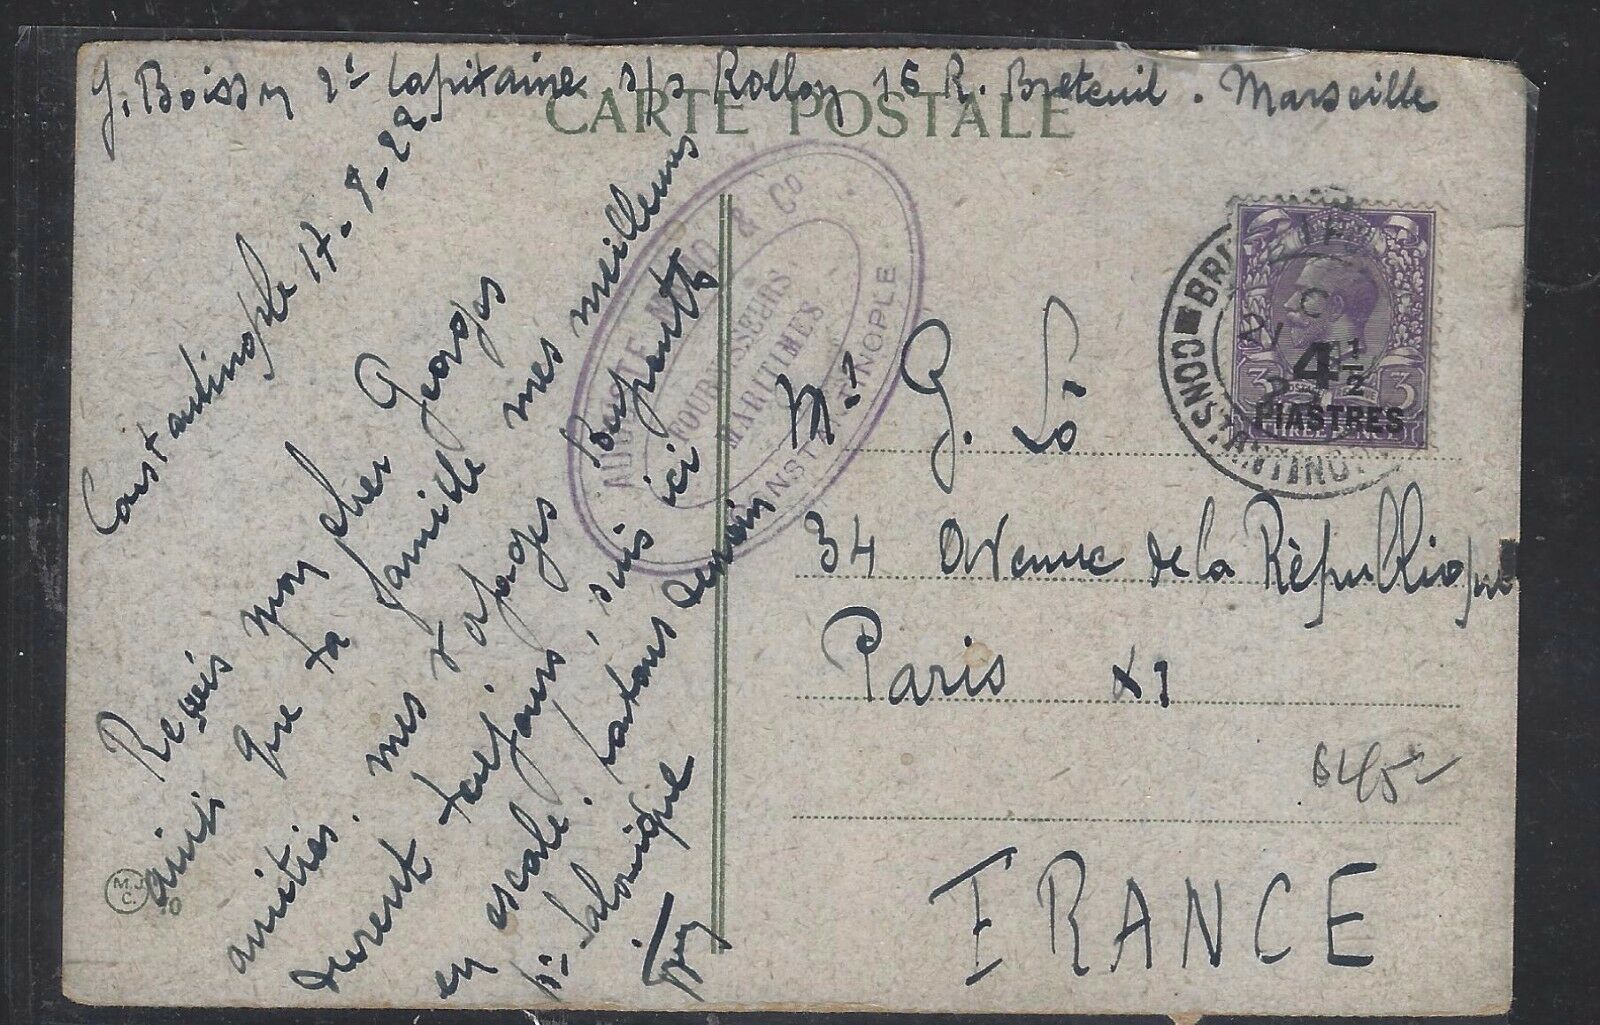 J. Boisson 2d Capitaine s/s Rollon 15 R. Breteuil. Marseille
CARTE POSTALE
Constantinople 17-8-22.
Reçois mon cher Georges
ainsi que ta famille mes meilleures
amitiés. mes voyages
durent toujours, suis ici
en escale, partons demain
pr Salonique
AUGUSTE & Co
FOURNISSEURS
MARITIMES
CONSTANTINOPLE
BRI
CONSTANTINOPLE
3 3
4 1/2
PIASTRES
Mr G. Lo
34 Avenue de la République
Paris XI
FRANCE
M.J.C.